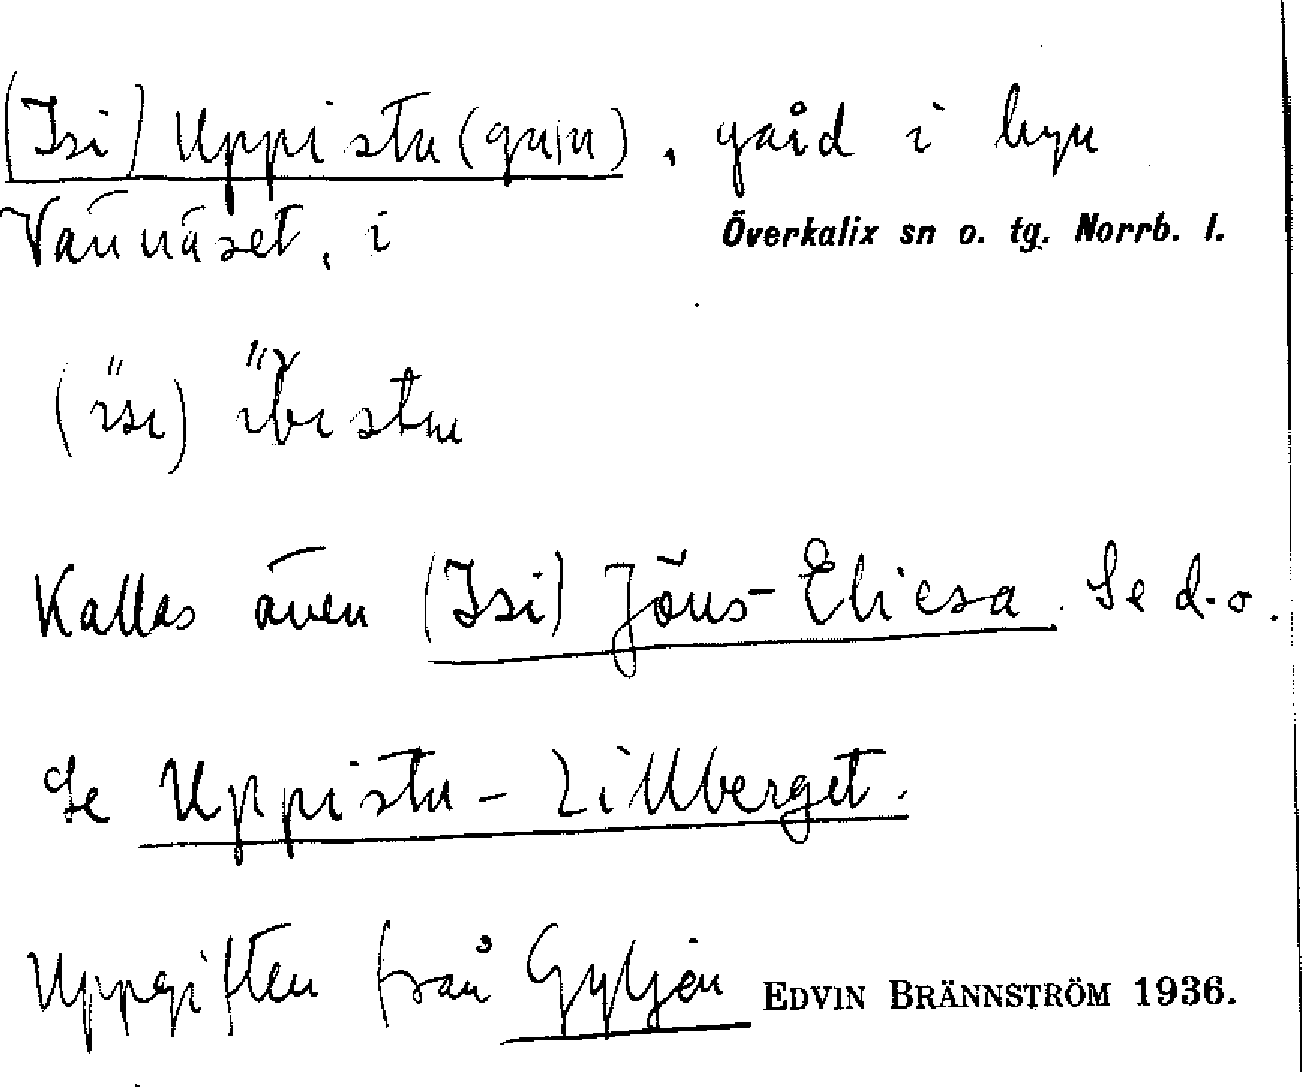 (Isi) Uppistu (gujn), gård i byn
Vännäset, i Överkalix sn o. tg. Norrb. l.
Kallas även (Isi) Jöns-Eliesa. Se d.o.
Se Uppistu-Lillberget.
Uppgiften från Gyljen EDVIN BRÄNNSTRÖM 1936.